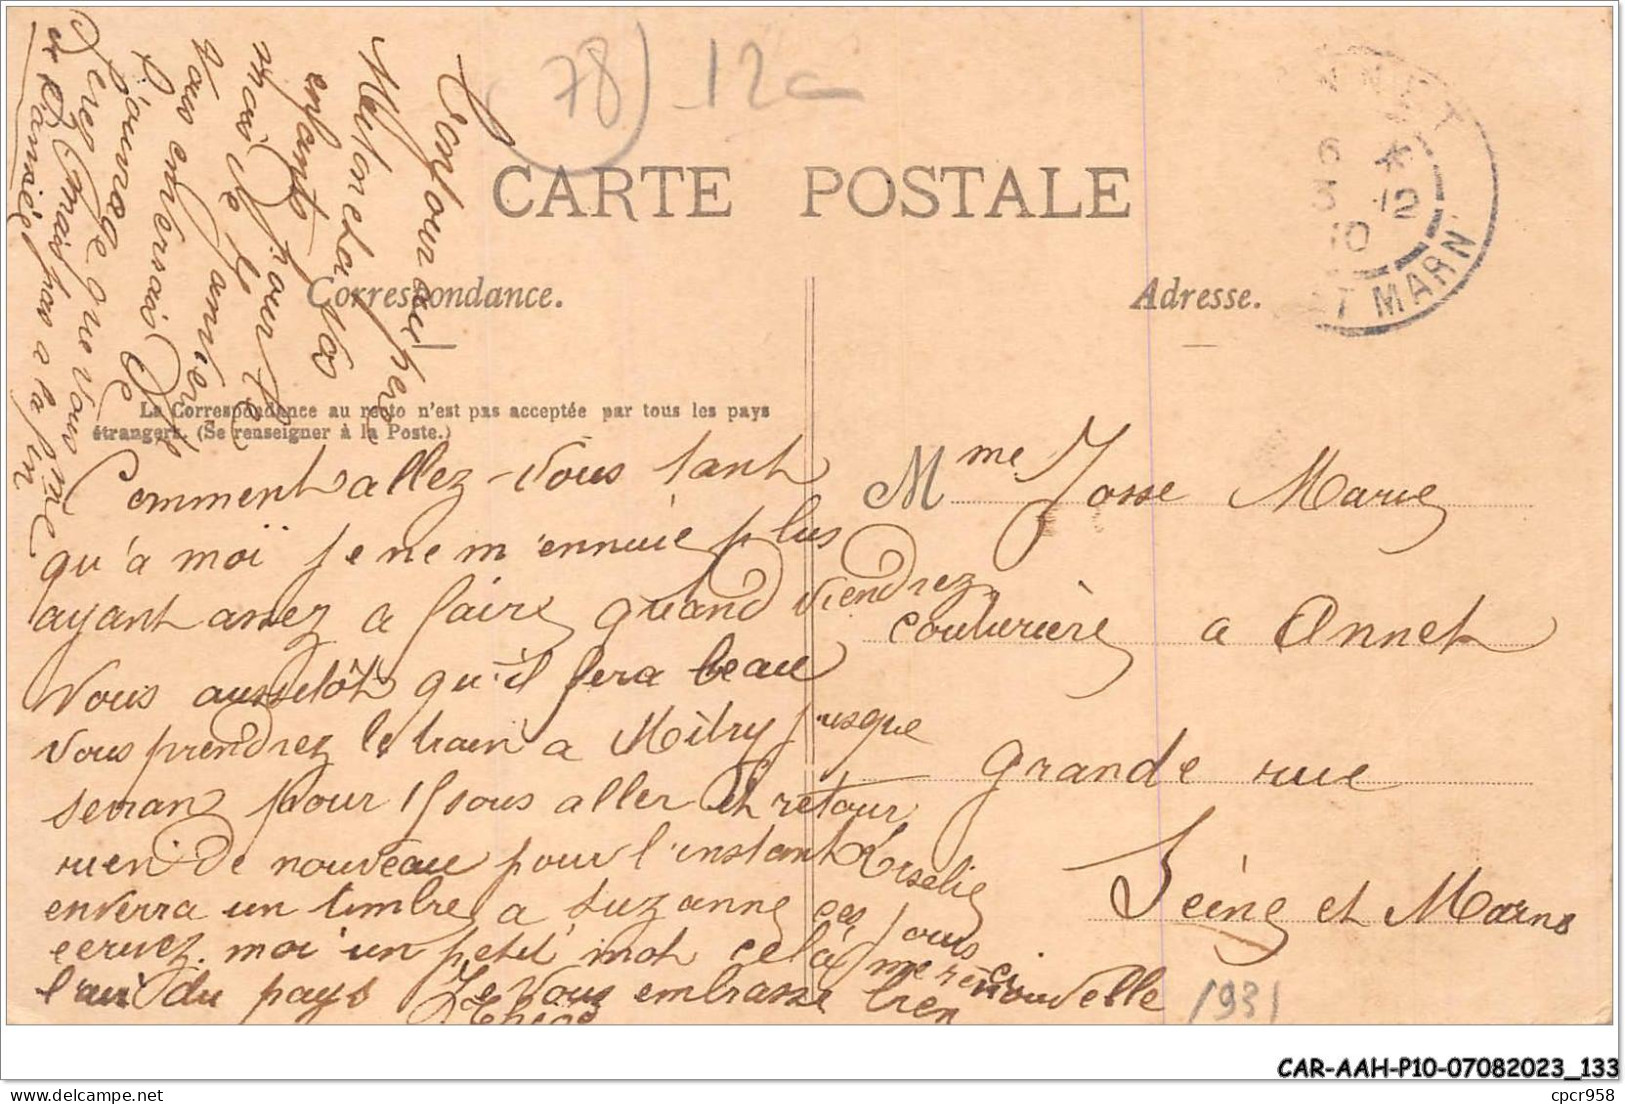 (78) 12c
CARTE POSTALE
Correspondance.
Adresse.
La Correspondance au recto n'est pas acceptée par tous les pays
étrangers. (Se renseigner à la Poste.)
NNET
6 *
3 12
10
ET MARN
Comment allez-vous tant
qu'a moi je ne m'ennuie plus
ayant assez a faire quand viendrez
Vous aussitôt qu'il fera beau
vous prendrez le train a Mitry jusque
pour 15 sous aller et retour
rien de nouveau pour l'instant Roselie
enverra un timbre a Suzanne ces jours ci
ecrivez moi un petit mot cela me renouvelle
l'air du pays Je vous embrasse bien
enfants
l'ouvrage que vous
mais pas a la fin
de l'année
Mme Josse Marie
couturière a Annet
grande rue
Seine et Marne
1931
CAR-AAH-P10-07082023_133
cpcr958